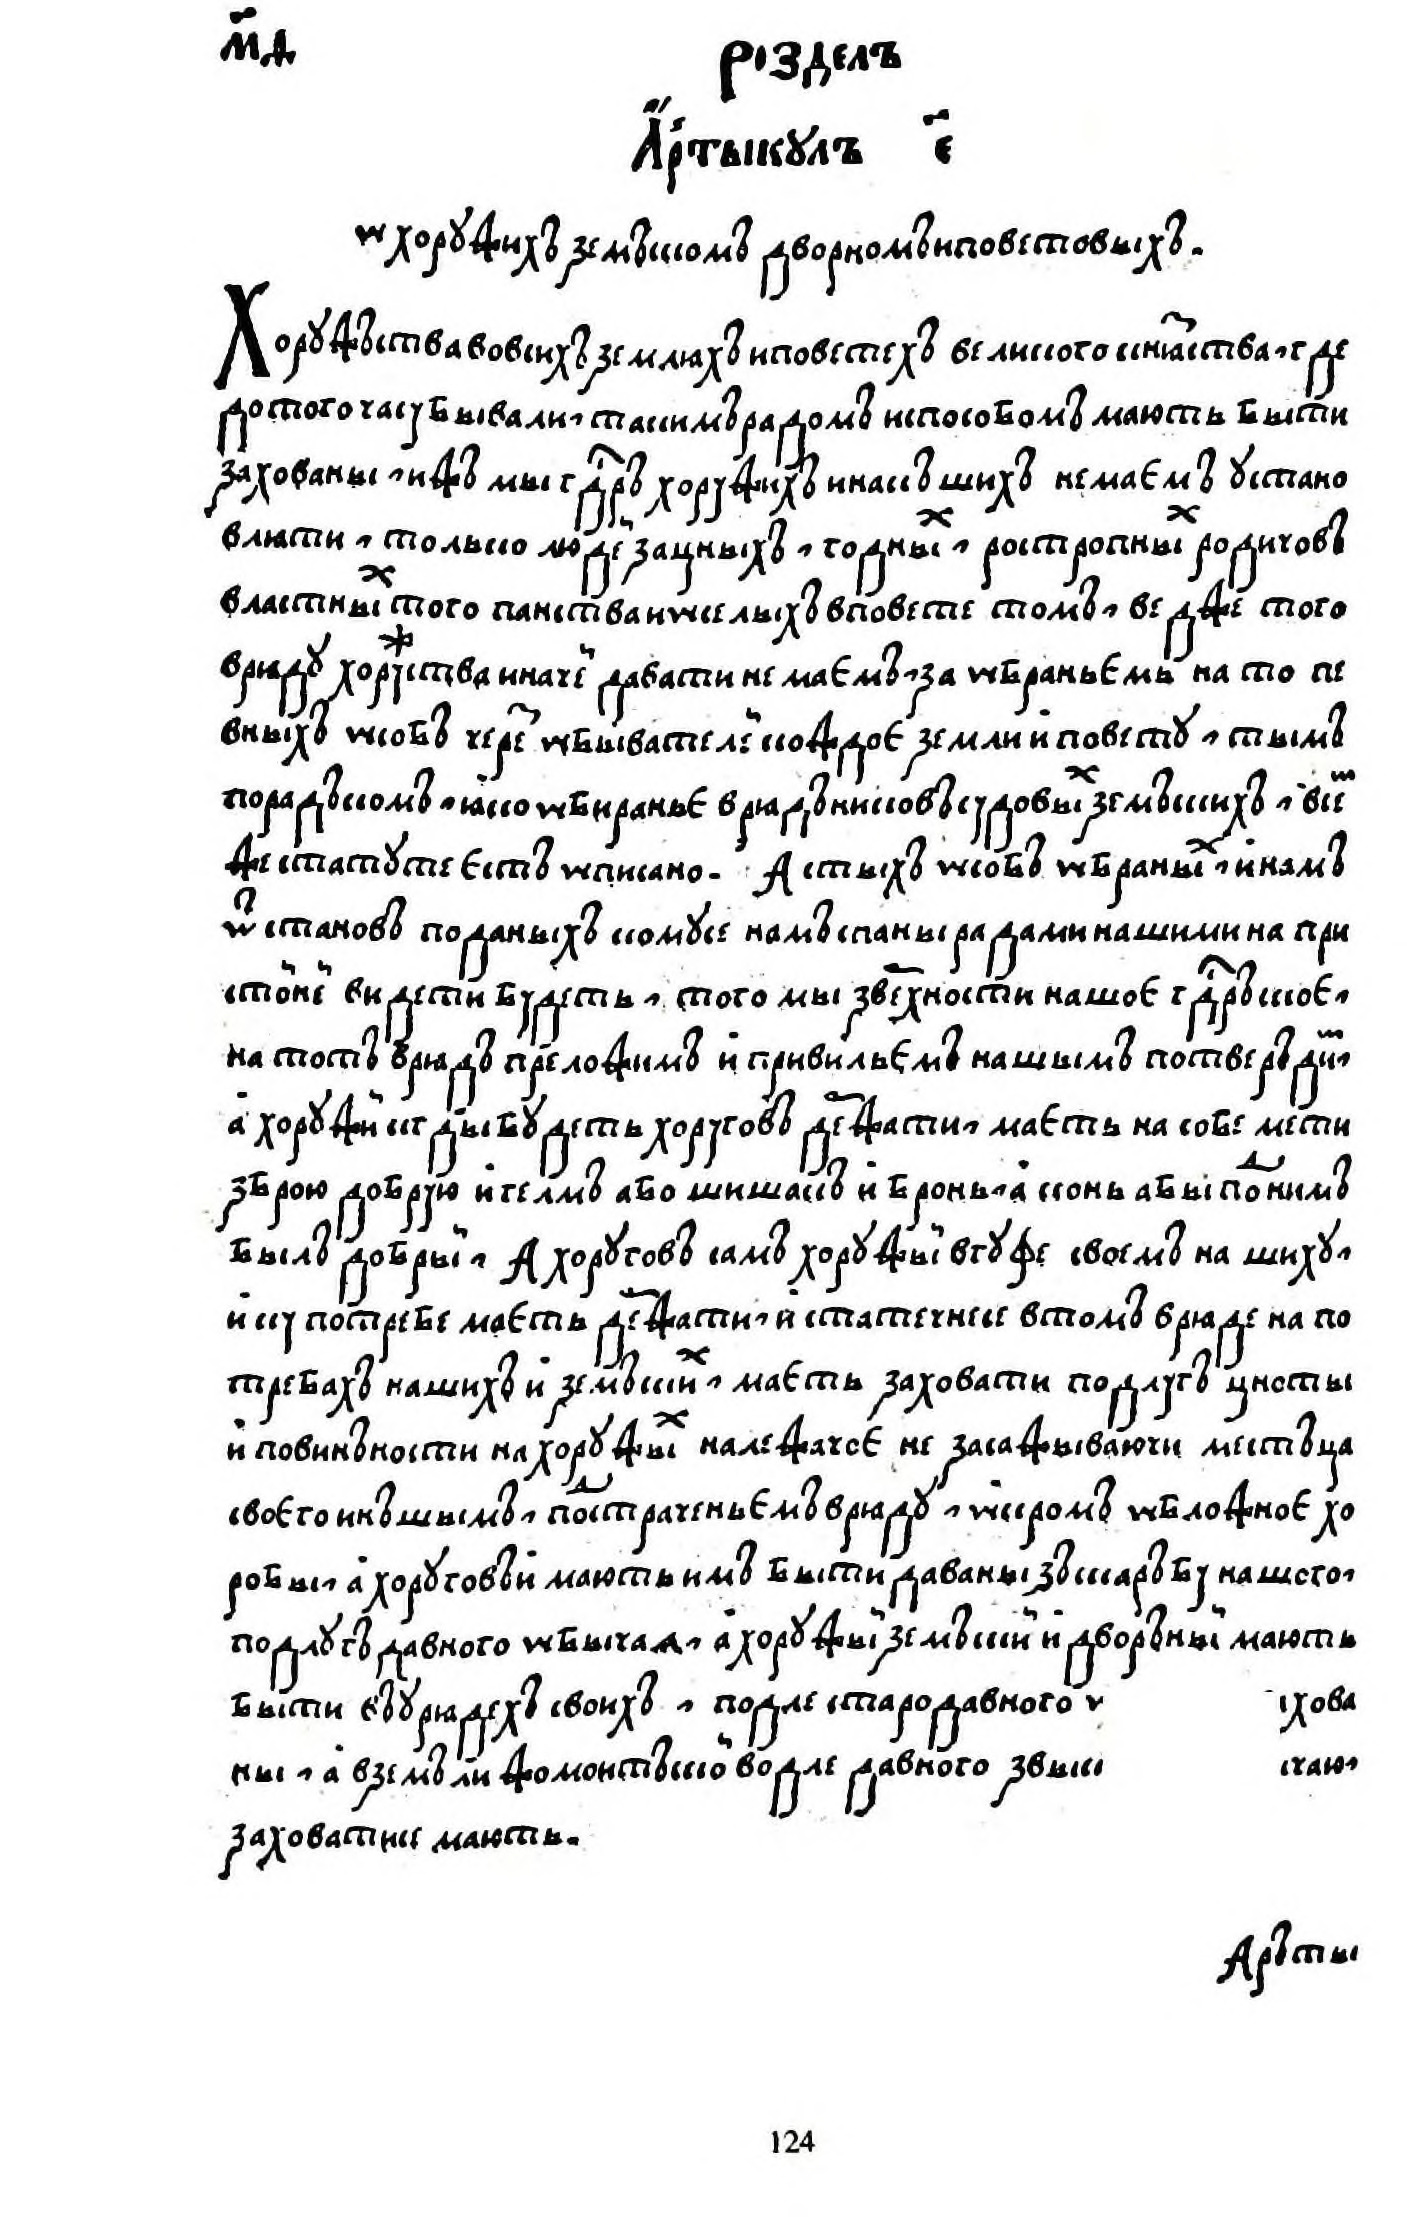 м҃д
розделъ
Артыкулъ е҃
ѡ хоружихъ земъскомъ дворномъ и поветовыхъ.
Хоружъства во всихъ землях и поветехъ великого кнꙗ҃ства, где
до того часу бывали, таким радомъ и способомъ мають быти
захованы, ижъ мы гд҃ръ хоружихъ инакъшихъ не маємъ устано
влѧти, только люде зацныхъ, годныхъ, ростропныхъ родичовъ
властныхъ того панства и ѡселыхъ в повете томъ, ведже того
врѧду хоружства иначе давати не маємъ, за ѡбраньємъ на то пе
вныхъ ѡсобъ чере ѡбывателе кождоє земли и повету, тымъ
порадъкомъ, ꙗко ѡбираньє врѧдъниковъ судовыхъ земъскихъ, в се
же статуте єстъ ѡписано. А с тыхъ ѡсобъ ѡбраныхъ, и намъ
ѿ становъ поданыхъ кому се намъ с паны радами нашими на при
стоне видети будеть, того мы з верхности нашоє гд҃ръскоє,
на тотъ врѧдъ преложимъ и привильємъ нашымъ потверъдит,
а хоружи кгды будеть хоруговъ держати, маєть на собе мети
зброю добрую и гелмъ або шишакъ и бронь, а конь абы под нимъ
былъ добрыи, А хоруговъ самъ хоружыи в гуфе своемъ на шиху,
и ку потребе маєть держати, и статечнее в томъ врѧде на по
требахъ нашихъ и земъскихъ, маєть заховати подлугъ цноты
и повинъности на хоружыхъ належачоє не засаживаючи местъца
своєго инъшымъ, под страченьємъ врѧду, ѡкромъ ѡбложноє хо
робы, а хоруговъи мають имъ быти даваны зъ скаръбу нашого,
подлугъ давного ѡбычаѧ, а хоружыи земъскии и дворъныи мають
быти въ урѧдехъ своихъ, подле стародавного хова
ны, а в земъли жомоитъскои водле давного звык чаю,
заховатисе мають.
Аръты
124